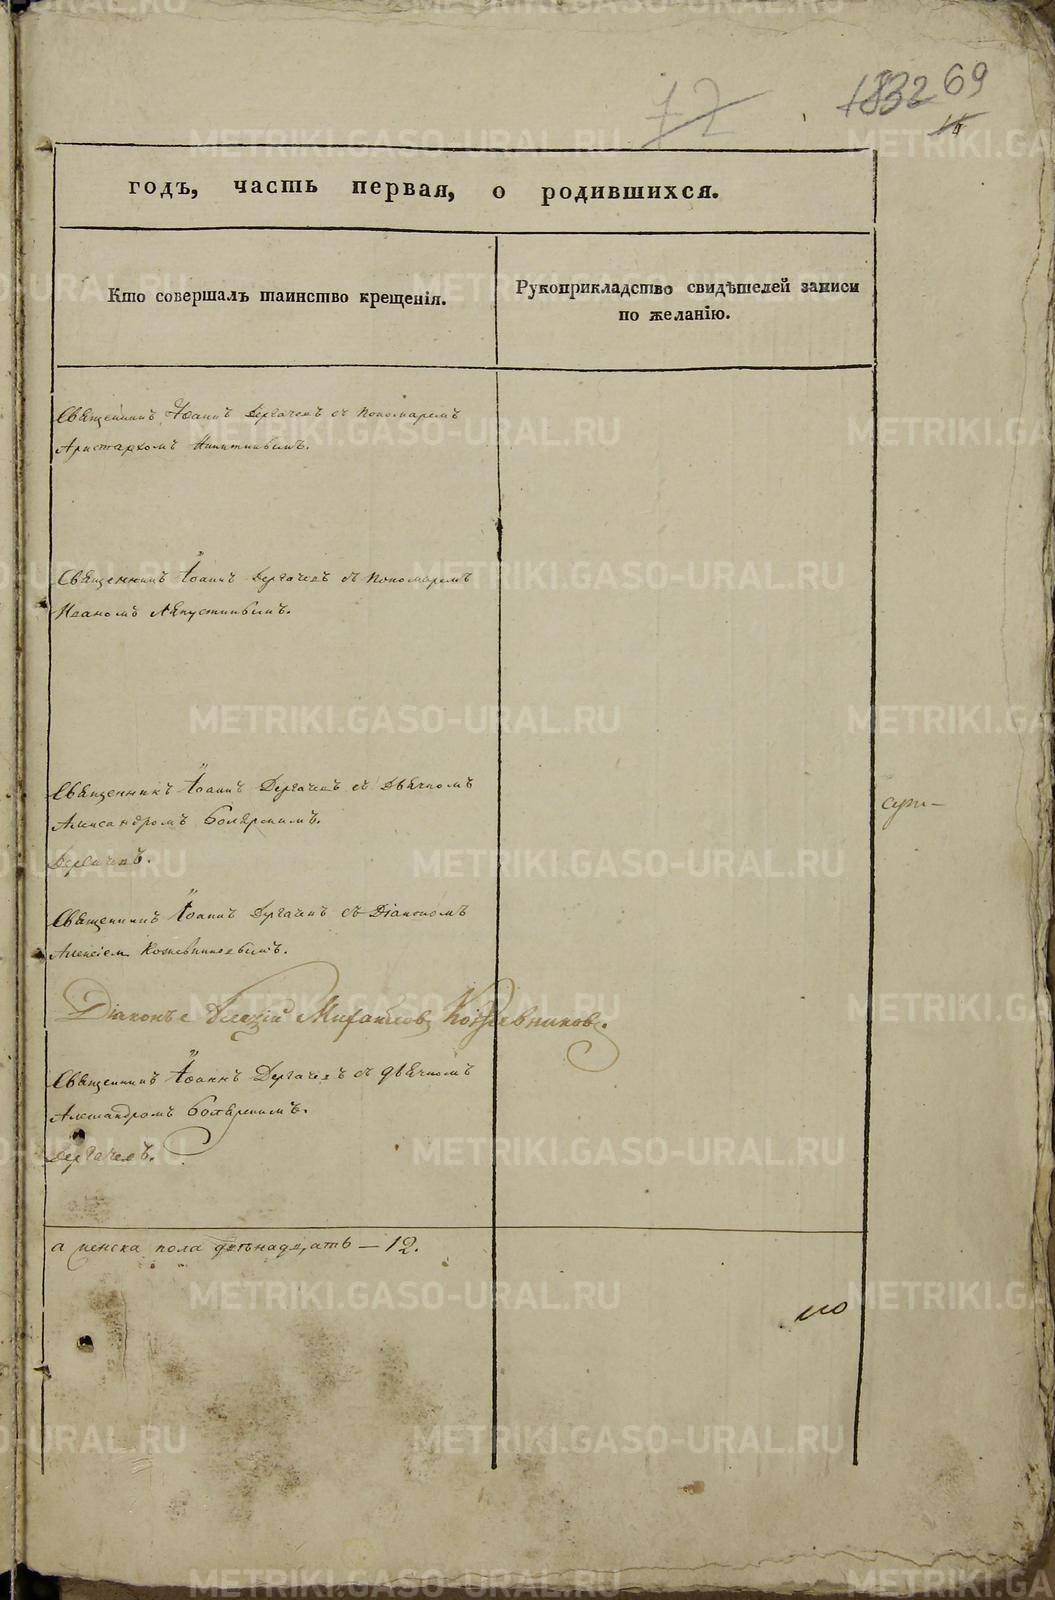 72
1832 69
годъ, часть первая, о родившихся.
Кто совершалъ таинство крещенія.
Рукоприкладство свидѣтелей записи
по желанію.
Священникъ Іоаннъ Дергачевъ съ пономаремъ
Аристархомъ Никитинымъ.
Священникъ Іоаннъ Дергачевъ съ пономаремъ
Иваномъ
Священникъ Іоаннъ Дергачевъ съ дьячкомъ
Александромъ Боярскимъ.
Дергачевъ.
Священникъ Іоаннъ Дергачевъ съ Діакономъ
Алексіем Кожевниковымъ.
Діаконъ Михайловъ Кожевниковъ.
Священникъ Іоаннъ Дергачевъ съ дьячкомъ
Александромъ Боярскимъ.
Дергачевъ.
а женска пола двѣнадцать — 12.
METRIKI.GASO-URAL.RU